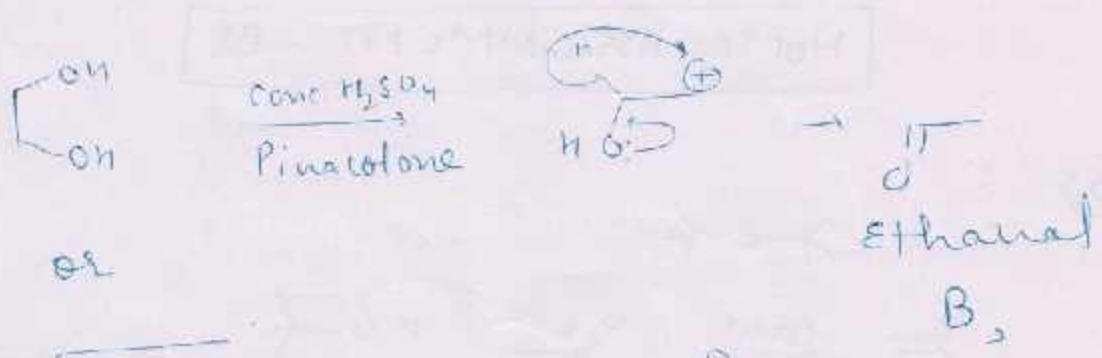 OH
OH
Conc H₂SO₄
Pinacolone
H
(+)
H O:
→
O
Ethanal
or
B,